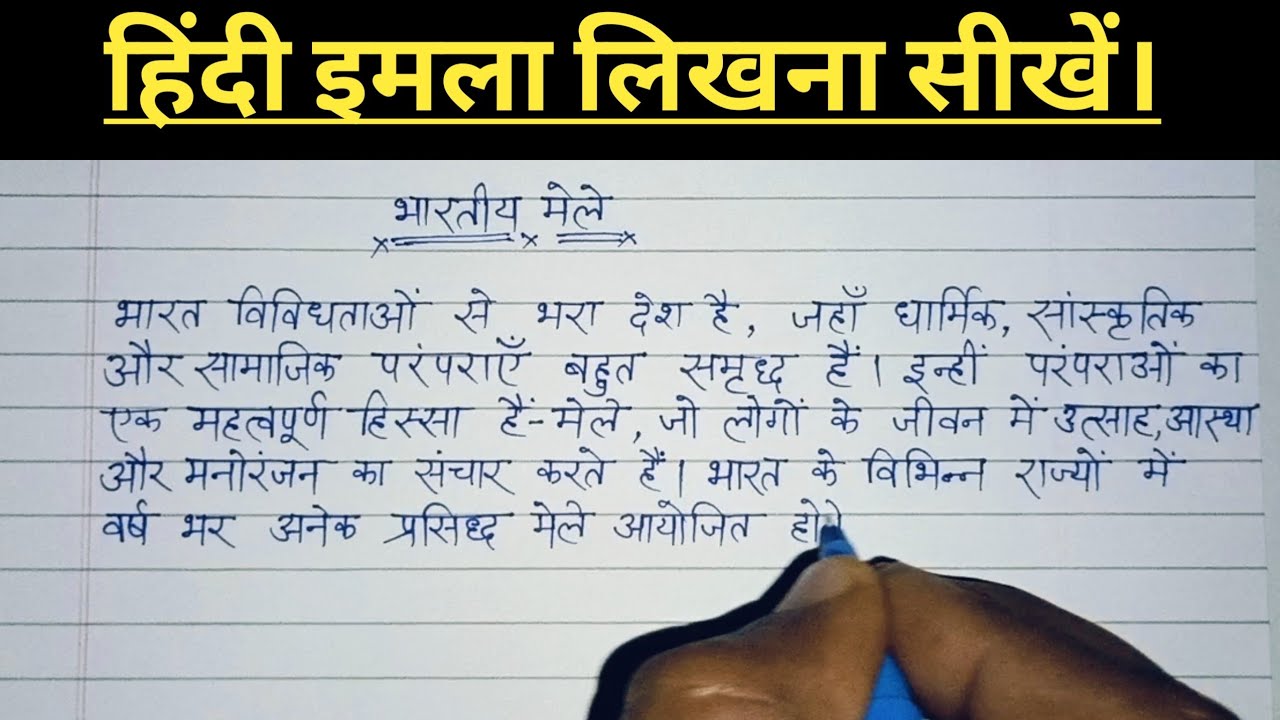 हिंदी इमला लिखना सीखें।
भारतीय मेले
भारत विविधताओं से भरा देश है, जहाँ धार्मिक, सांस्कृतिक
और सामाजिक परंपराएँ बहुत समृद्ध हैं। इन्हीं परंपराओं का
एक महत्वपूर्ण हिस्सा हैं-मेले, जो लोगों के जीवन में उत्साह, आस्था
और मनोरंजन का संचार करते हैं। भारत के विभिन्न राज्यों में
वर्ष भर अनेक प्रसिद्ध मेले आयोजित